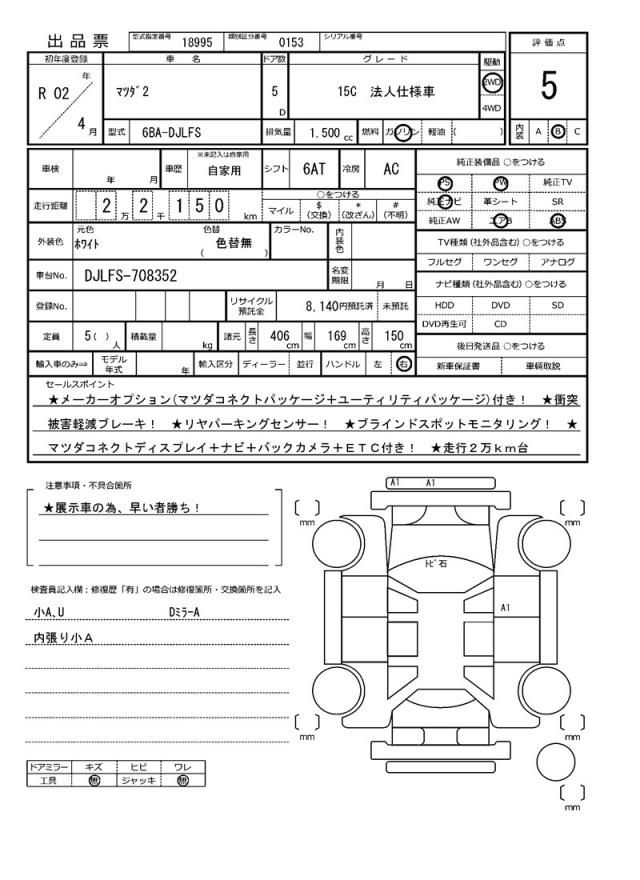 出品票 型式指定番号 18995 類別区分番号 0153 シリアル番号
評価点
初年度登録 車名 ドア数 グレード 駆動
R 02 年 4 月
マツダ2 5 D 15C 法人仕様車 2WD 4WD
5
型式 6BA-DJLFS 排気量 1.500 cc 燃料 ガソリン 軽油 ( )
内装 A B C
車検 年 月 車歴 ※未記入は自家用 自家用 シフト 6AT 冷房 AC
純正装備品 ○をつける
PS PW 純正TV
純正ナビ 革シート SR
純正AW エアB ABS
走行距離 2 万 2 千 1 5 0 km
○をつける
マイル $(交換) *(改ざん) #(不明)
TV種類(社外品含む)○をつける
フルセグ ワンセグ アナログ
外装色 元色 ホワイト 色替 ( 色替無 ) カラーNo. 内装色
車台No. DJLFS-708352 名変期限 月 日
ナビ種類(社外品含む)○をつける
HDD DVD SD
DVD再生可 CD
登録No. リサイクル預託金 8,140円預託済 未預託
定員 5( ) 人 積載量 kg 諸元 長さ 406 cm 幅 169 cm 高さ 150 cm
後日発送品 ○をつける
新車保証書 車輌取説
輸入車のみ⇒ モデル年式 年 輸入区分 ディーラー 並行 ハンドル 左 右
セールスポイント
★メーカーオプション(マツダコネクトパッケージ+ユーティリティパッケージ)付き! ★衝突
被害軽減ブレーキ! ★リヤパーキングセンサー! ★ブラインドスポットモニタリング! ★
マツダコネクトディスプレイ+ナビ+バックカメラ+ETC付き! ★走行2万km台
注意事項・不具合箇所
★展示車の為、早い者勝ち!
検査員記入欄:修復歴「有」の場合は修復箇所・交換箇所を記入
小A、U Dミラ-A
内張り小A
ドアミラー キズ ヒビ ワレ
工具 無 ジャッキ 無
A1 A1
mm mm
トビ石
A1
mm mm
mm